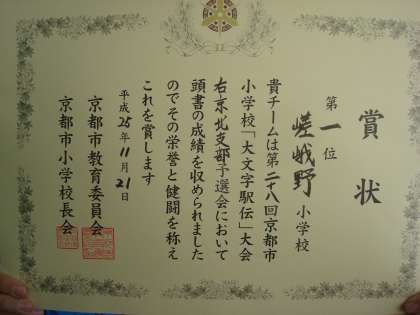 賞状
第一位
嵯峨野小学校
貴チームは第二十八回京都市
小学校「大文字駅伝」大会
右京北支部予選会において
頭書の成績を収められました
のでその栄誉と健闘を称え
これを賞します
平成25年11月21日
京都市教育委員会
京都市小学校長会